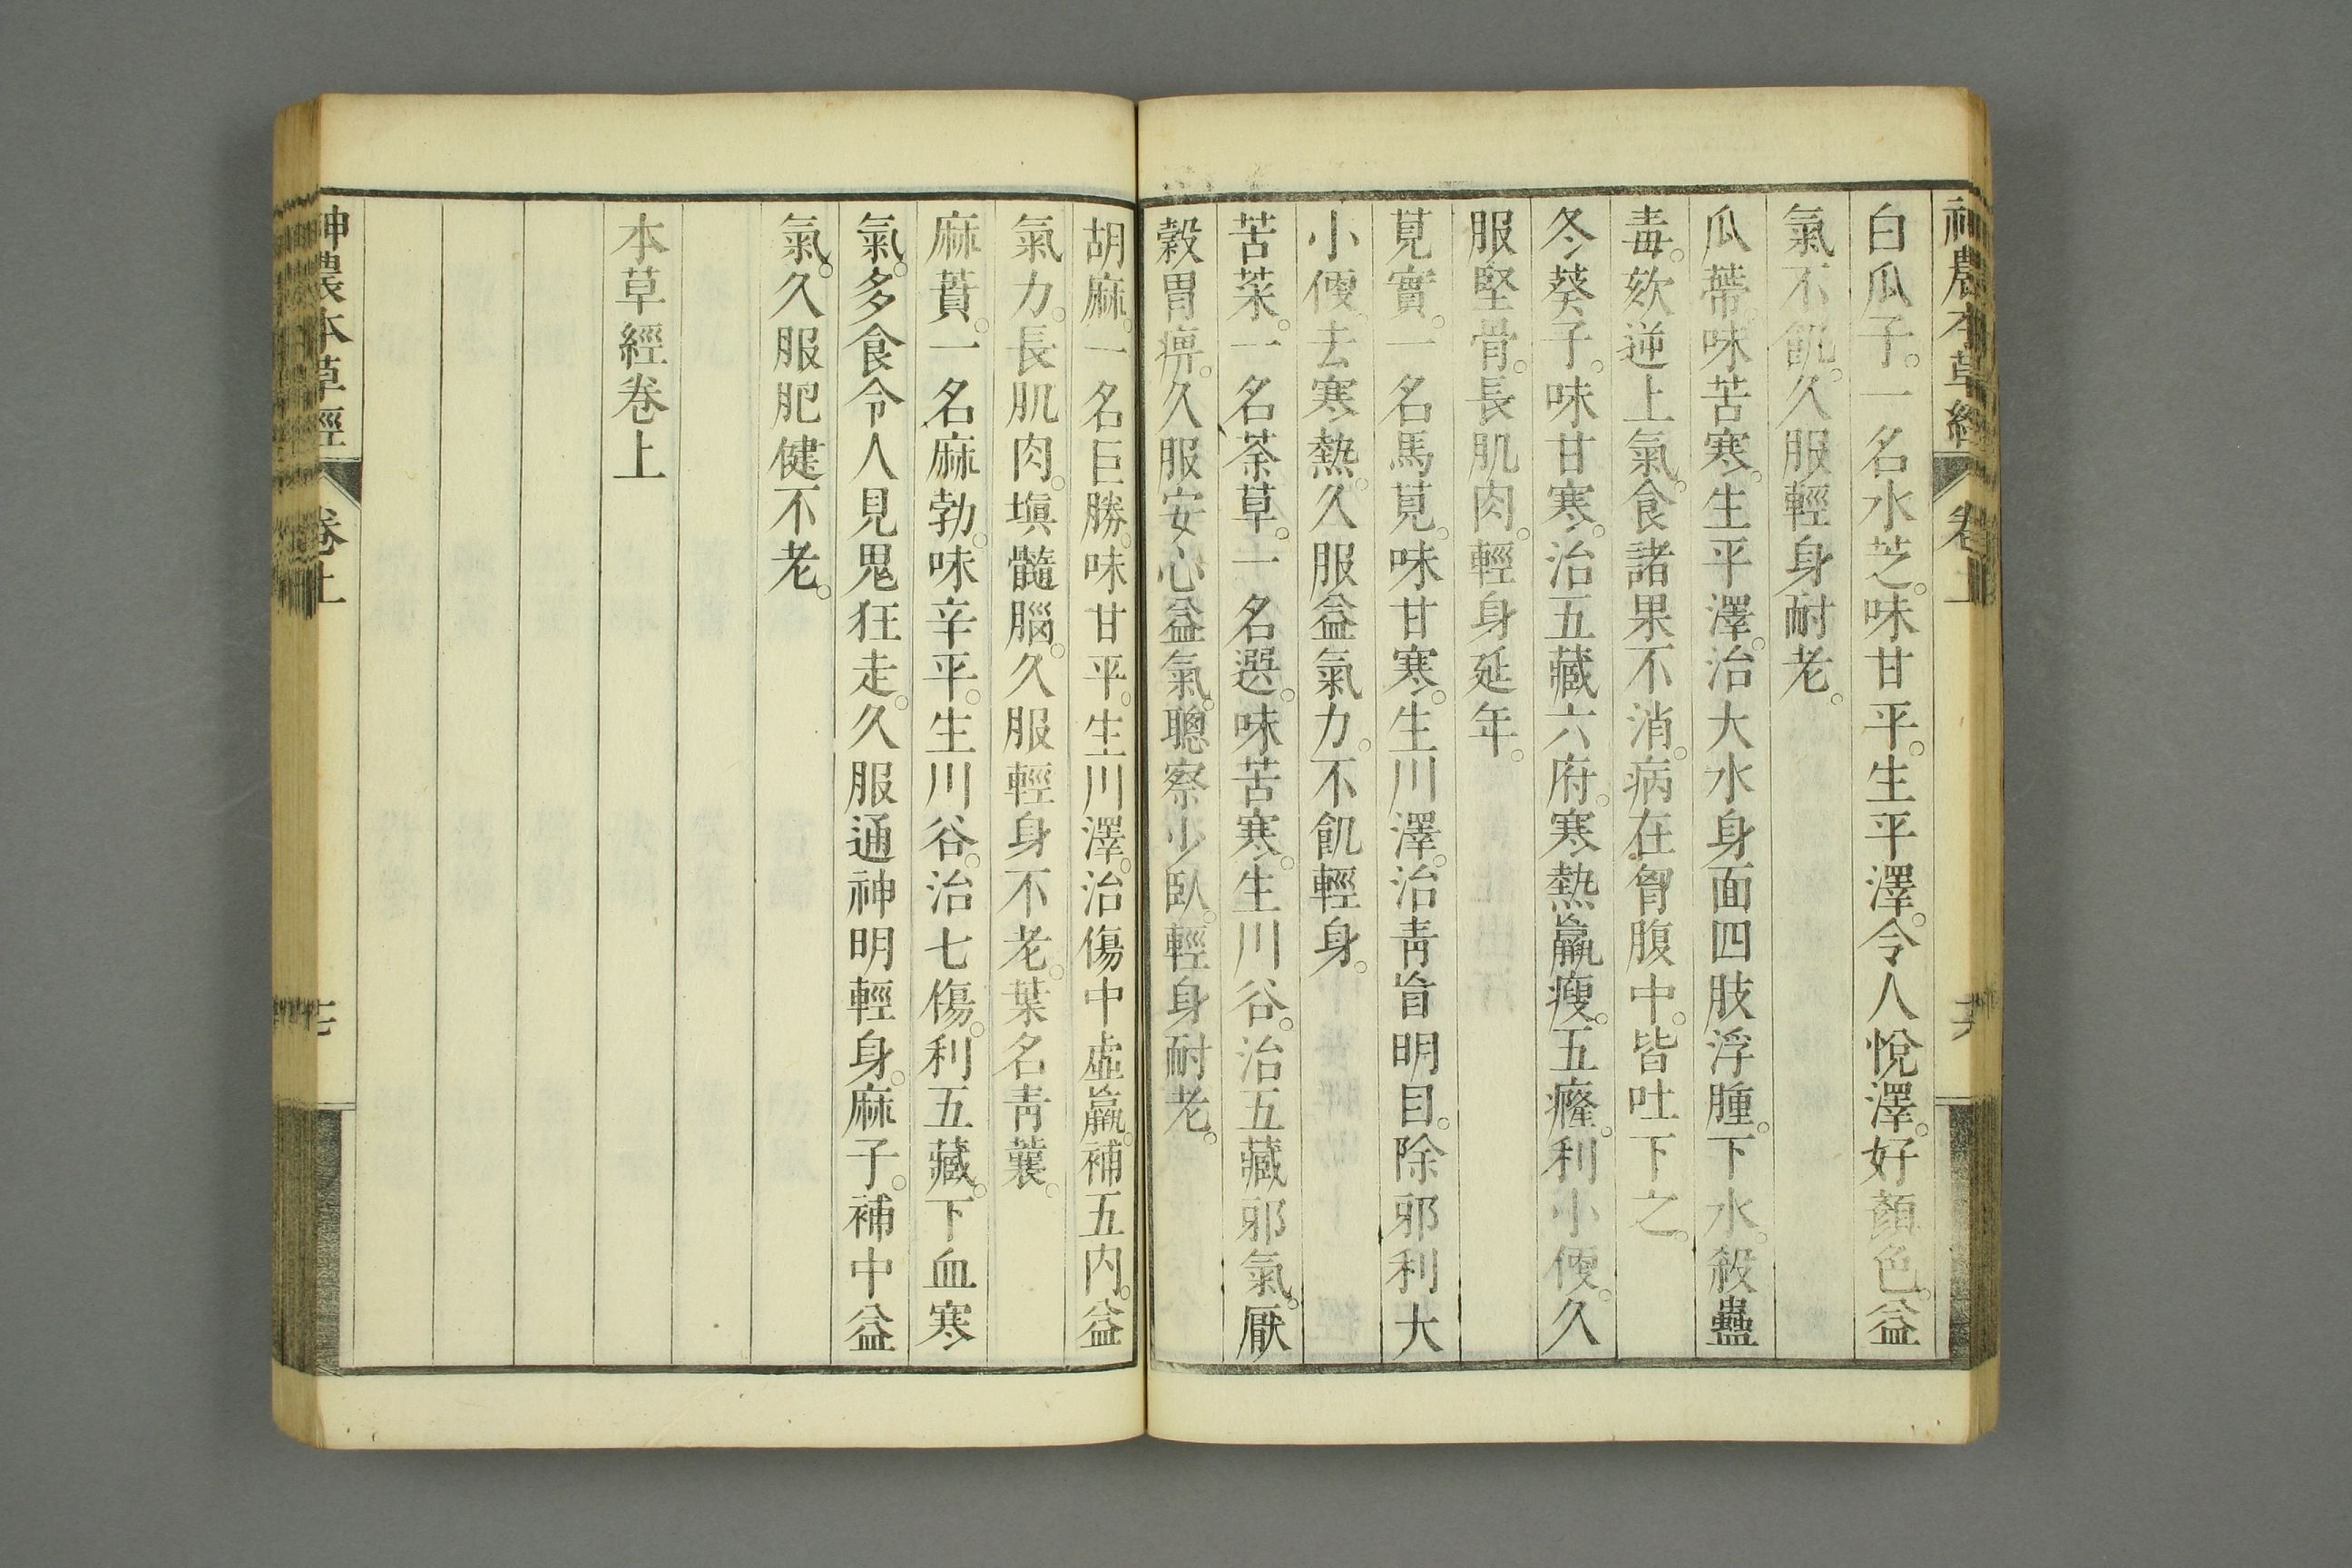 神農本草經 卷上 十六
白瓜子。一名水芝。味甘平。生平澤。令人悅澤。好顏色。益
氣不飢。久服輕身耐老。
瓜蔕。味苦寒。生平澤。治大水身面四肢浮腫。下水。殺蠱
毒。欬逆上氣。食諸果不消。病在胷腹中。皆吐下之。
冬葵子。味甘寒。治五藏六府。寒熱羸瘦。五癃。利小便。久
服堅骨。長肌肉。輕身延年。
莧實。一名馬莧。味甘寒。生川澤。治靑盲明目。除邪利大
小便。去寒熱。久服益氣力。不飢輕身。
苦菜。一名荼草。一名選。味苦寒。生川谷。治五藏邪氣。厭
穀胃痹。久服安心益氣。聰察少臥。輕身耐老。
胡麻。一名巨勝。味甘平。生川澤。治傷中虛羸。補五內。益
氣力。長肌肉。塡髓腦。久服輕身不老。葉名靑蘘。
麻蕡。一名麻勃。味辛平。生川谷。治七傷。利五藏。下血寒
氣。多食令人見鬼狂走。久服通神明輕身。麻子。補中益
氣。久服肥健不老。
本草經卷上
神農本草經 卷上 十七